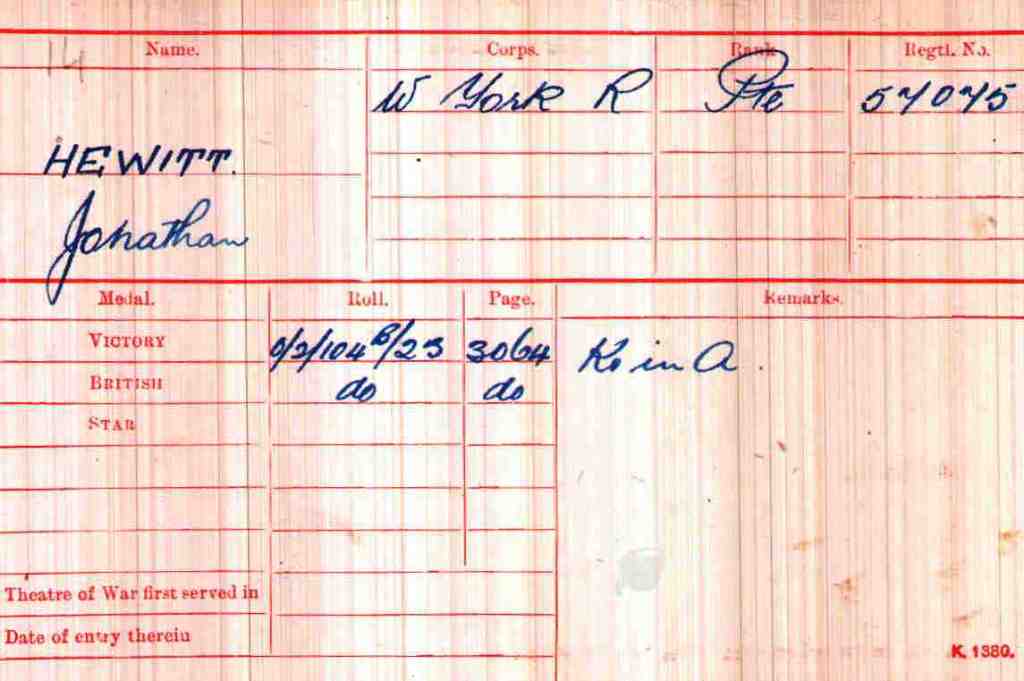 Name. Corps. Rank Regtl. No.
W York R Pte 57075
HEWITT.
Jonathan
Medal. Roll. Page. Remarks.
VICTORY 0/2/104 B/23 3064 K in A.
BRITISH do do
STAR
Theatre of War first served in
Date of entry therein
K. 1380.